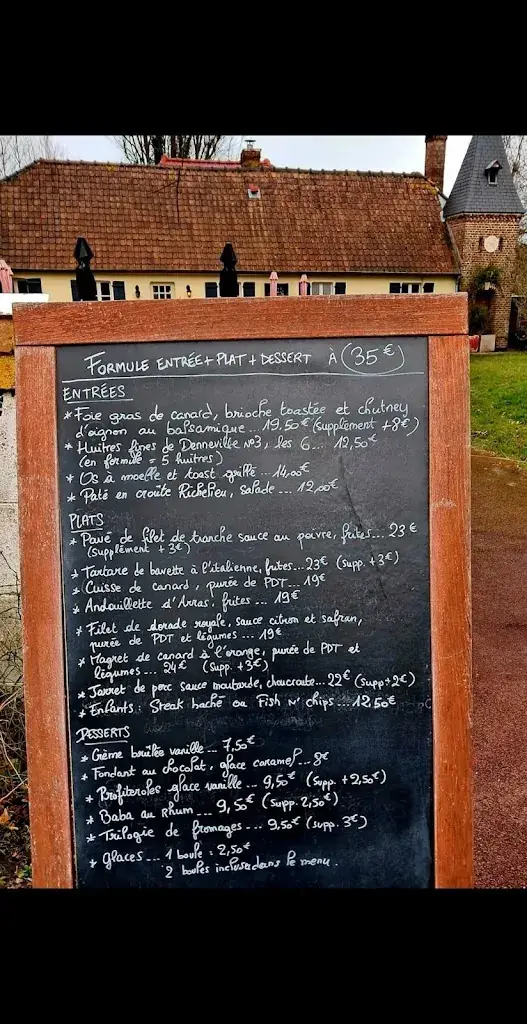 FORMULE ENTRÉE + PLAT + DESSERT À 35€
ENTRÉES
* Foie gras de canard, brioche toastée et chutney
d'oignon au balsamique... 19,50€ (supplément +8€)
* Huitres fines de Denneville N°3, les 6... 12,50€
(en formule = 5 huitres)
* Os à moelle et toast grillé... 14,00€
* Paté en croûte Richelieu, salade... 12,00€
PLATS
* Pavé de filet de tranche sauce au poivre, frites... 23€
(supplément +3€)
* Tartare de bavette à l'italienne, frites... 23€ (supp. +3€)
* Cuisse de canard, purée de PDT... 19€
* Andouillette d'Arras, frites... 19€
* Filet de dorade royale, sauce citron et safran,
purée de PDT et légumes... 19€
* Magret de canard à l'orange, purée de PDT et
légumes... 24€ (supp. +3€)
* Jarret de porc sauce moutarde, choucroute... 22€ (supp+2€)
* Enfants : Steak haché ou Fish N' chips... 12,50€
DESSERTS
* Crème brûlée vanille... 7,50€
* Fondant au chocolat, glace caramel... 8€
* Profiteroles glace vanille... 9,50€ (supp. +2,50€)
* Baba au Rhum... 9,50€ (supp. 2,50€)
* Trilogie de fromages... 9,50€ (supp. 3€)
* Glaces... 1 boule : 2,50€
2 boules incluses dans le menu.